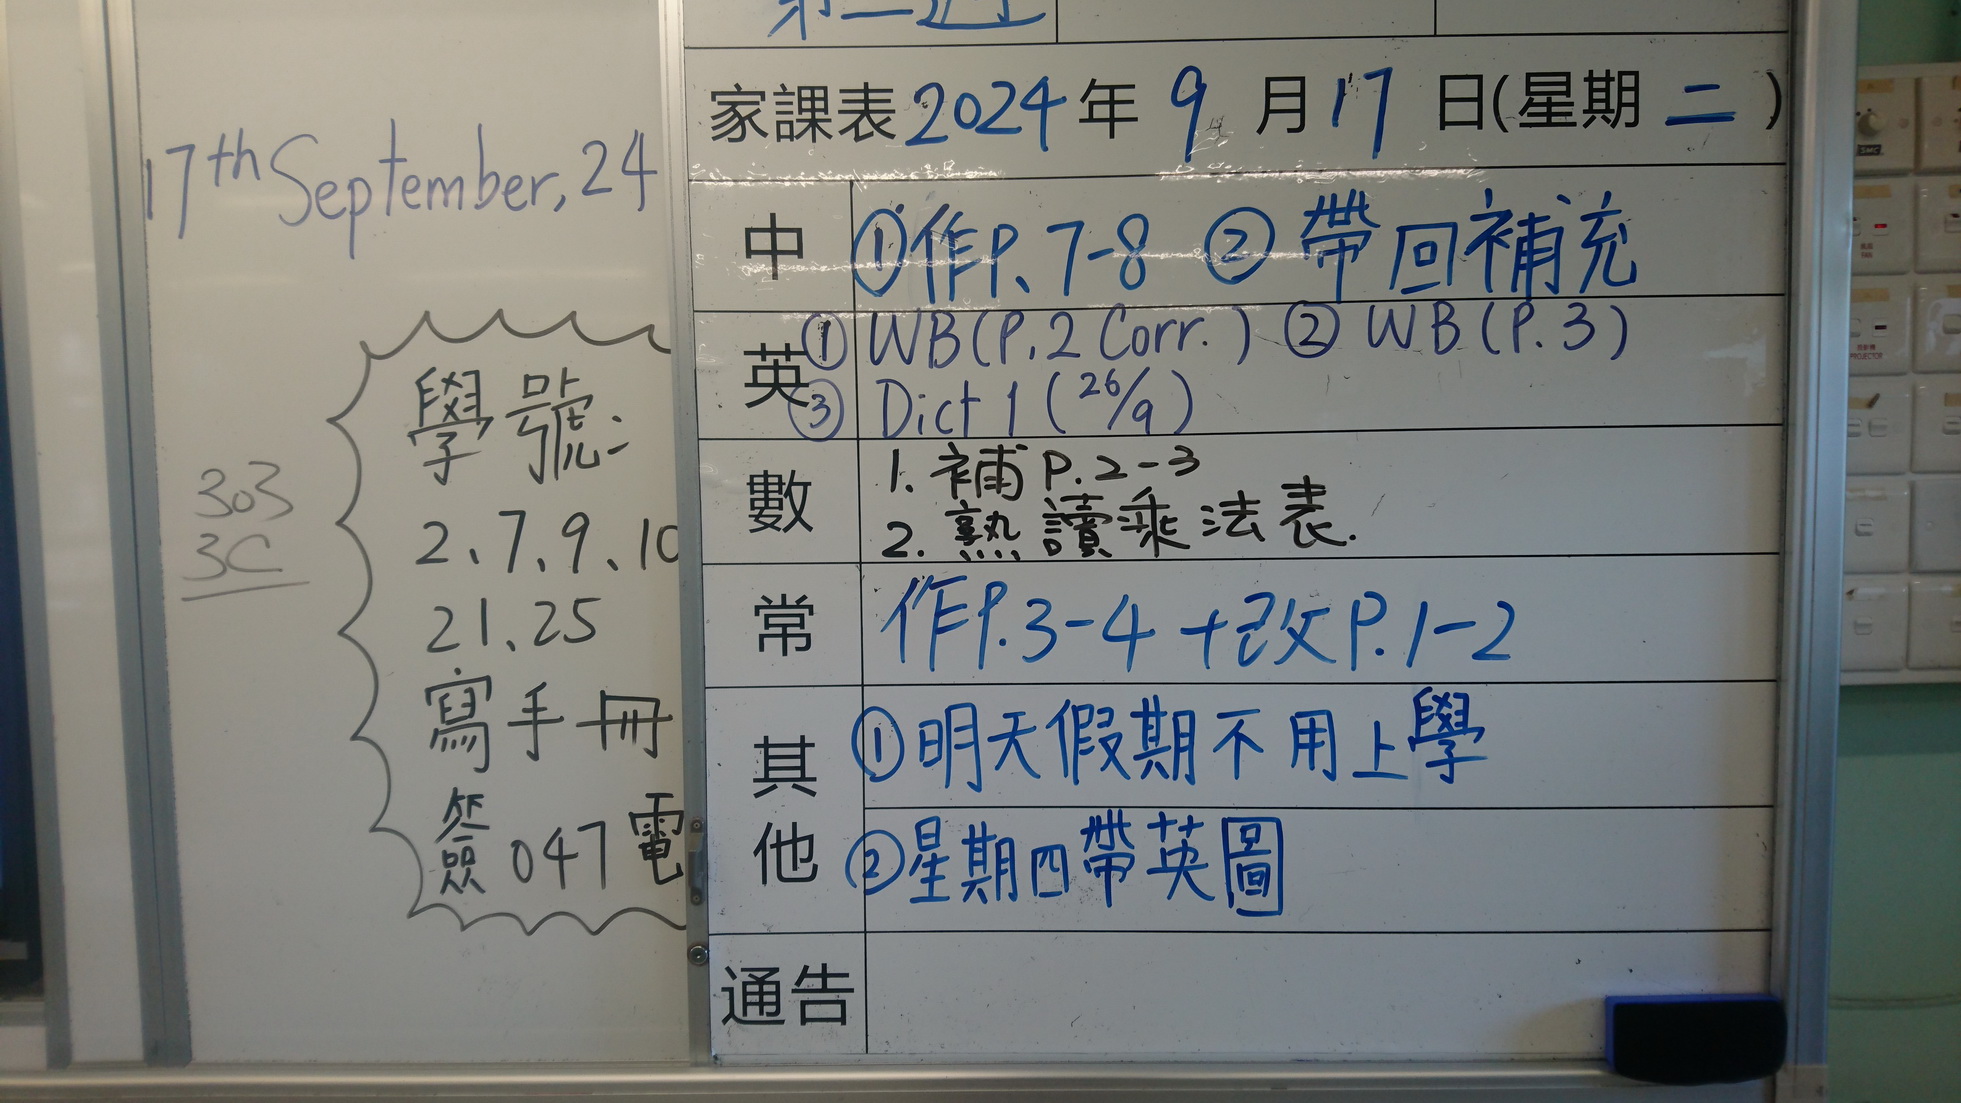 17th September, 24
303
3C
學號:
2、7、9、10
21、25
寫手冊
簽047電
家課表2024年9月17日(星期二)
中 ①作P.7-8 ②帶回補充
英 ①WB(P.2 Corr.) ②WB(P.3)
③Dict 1(26/9)
數 1.補P.2-3
2.熟讀乘法表.
常 作P.3-4+改P.1-2
其他 ①明天假期不用上學
②星期四帶英圖
通告